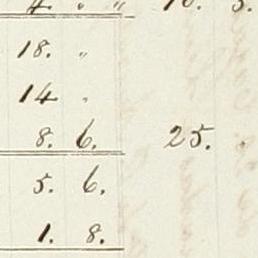 4. " "
18. "
14 "
8. 6. 25.
5. 6.
1. 8.